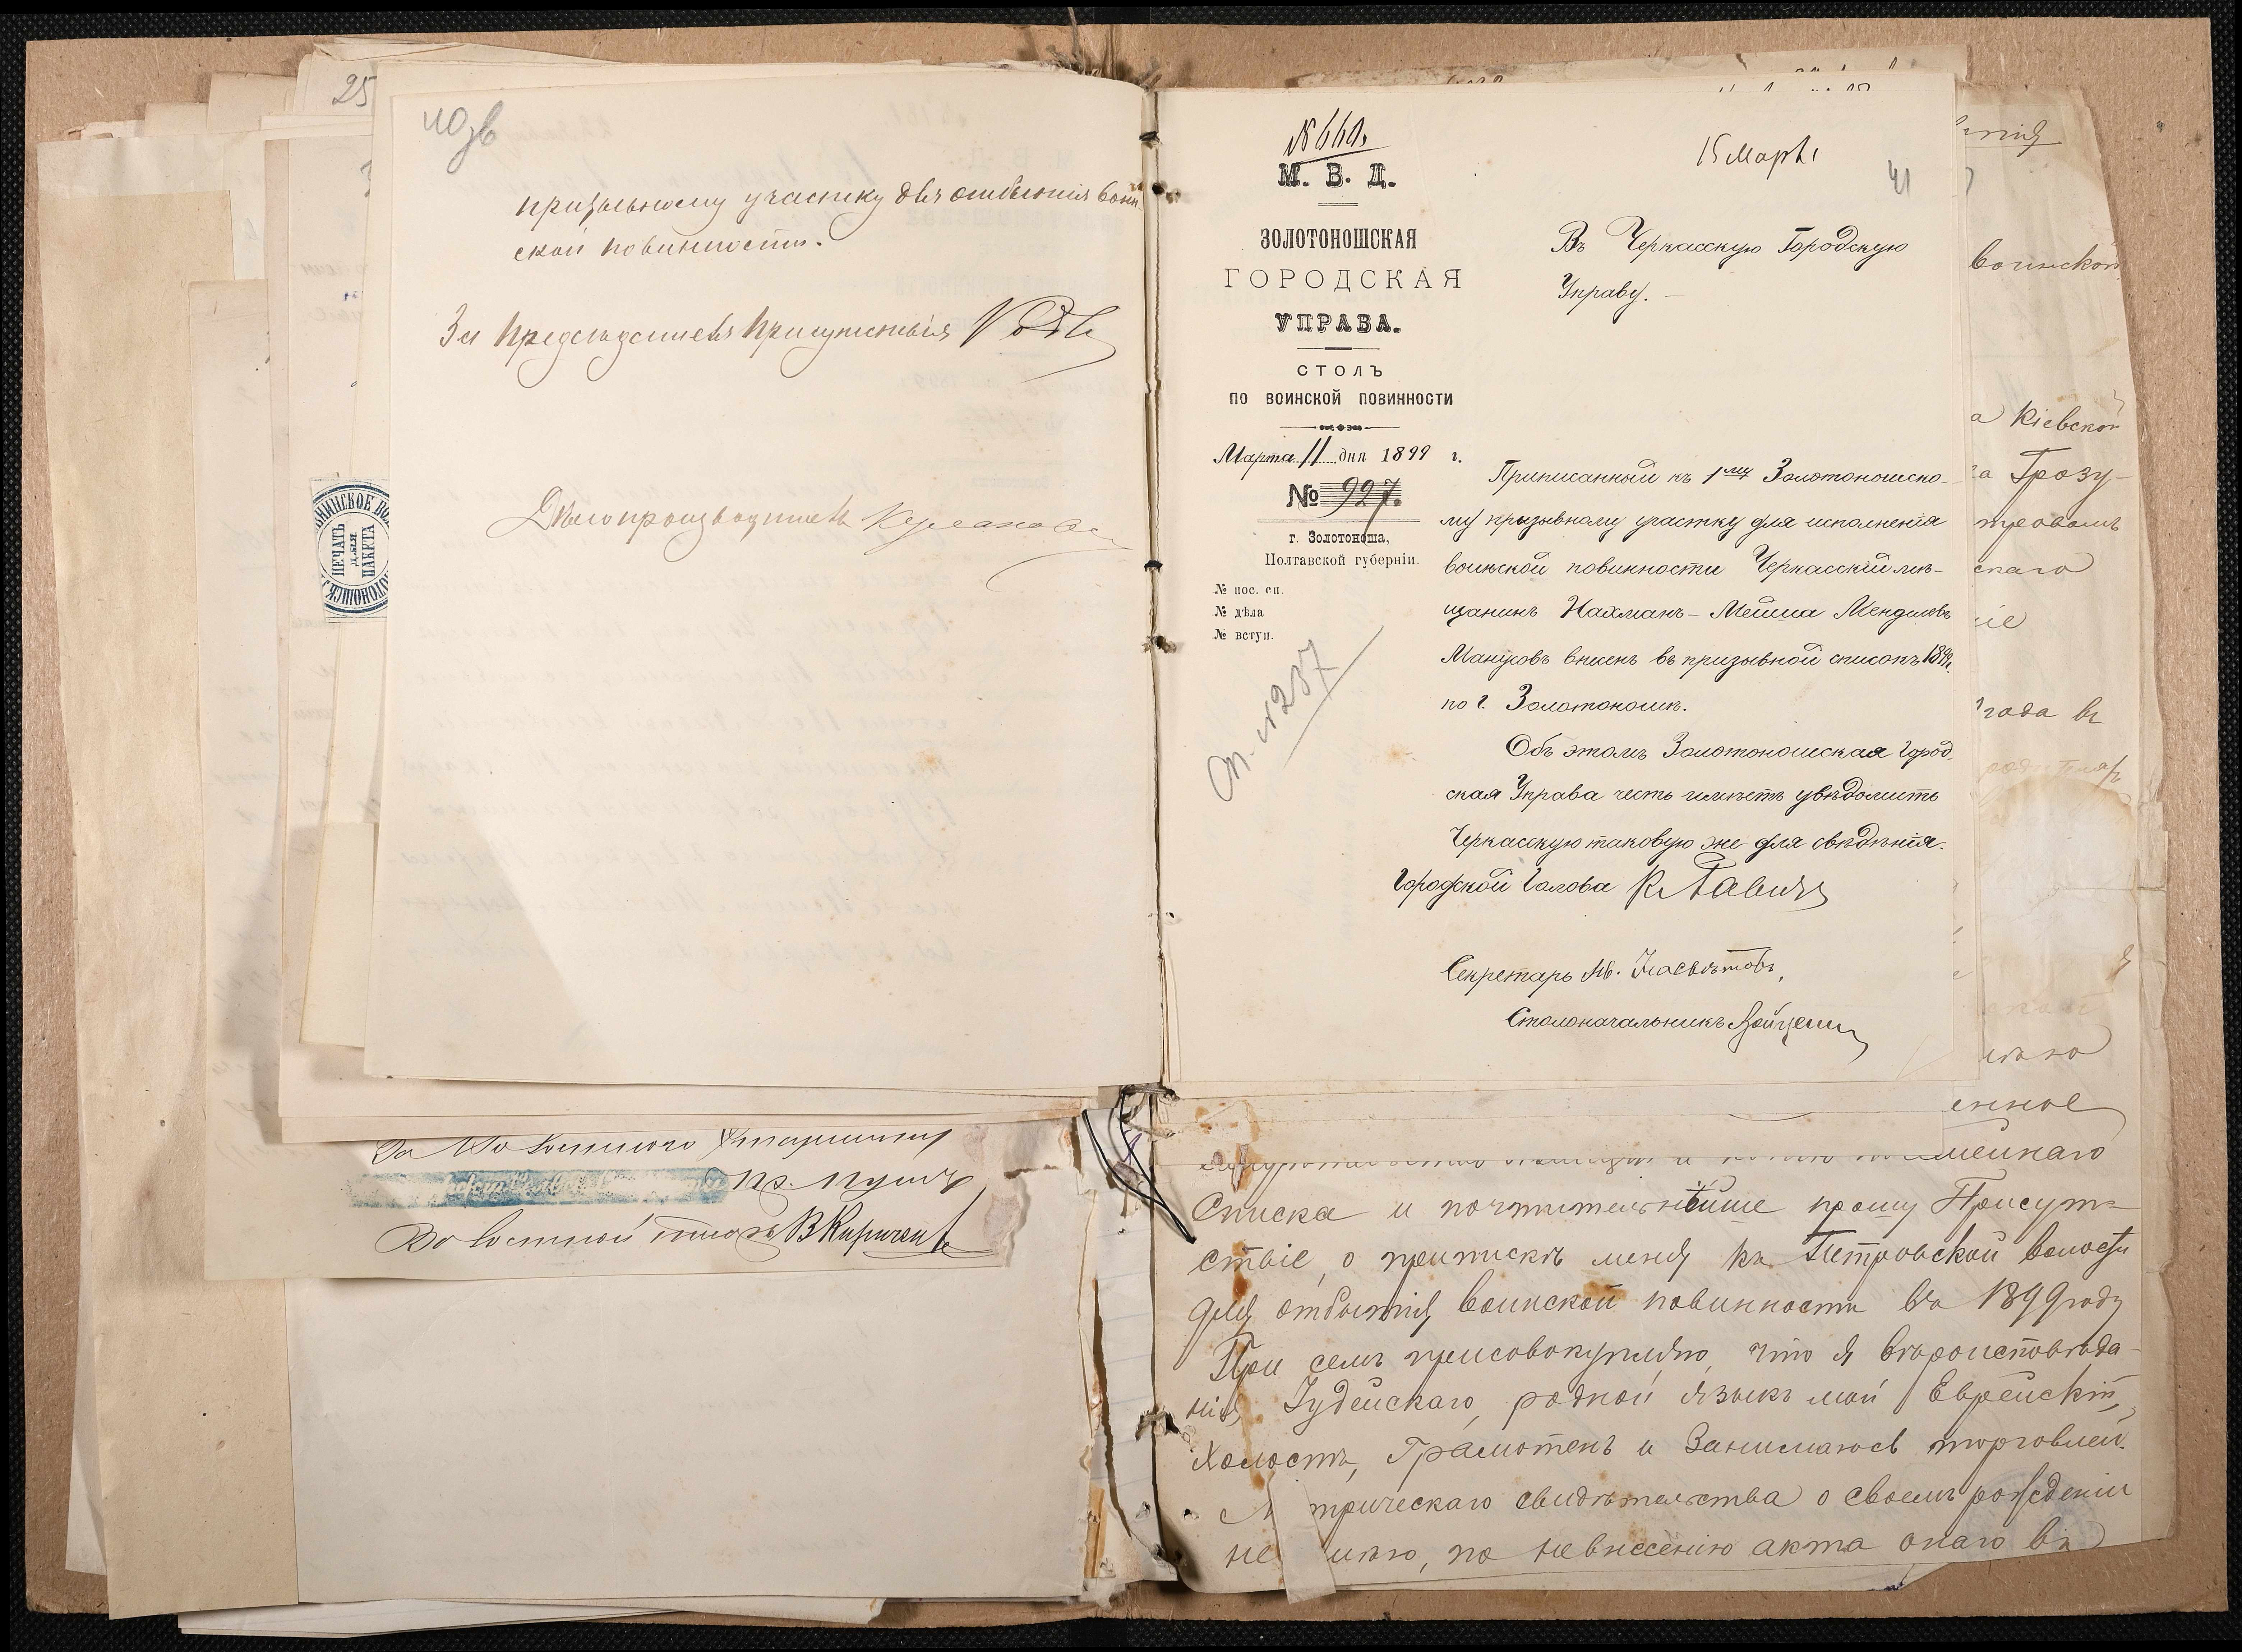 25
40зв
призывному участку для отбытія воин
ской повинности.
За Предсѣдателя Присутствія
Дѣлопроизводитель
ПЕЧАТЬ
ДЛЯ
ПАКЕТА
№ 660.
М. В. Д.
ЗОЛОТОНОШСКАЯ
ГОРОДСКАЯ
УПРАВА.
СТОЛЪ
ПО ВОИНСКОЙ ПОВИННОСТИ
Марта 11 дня 1899 г.
№ 927.
г. Золотоноша,
Полтавской губерніи.
№ пос. сп.
№ дѣла
№ вступ.
Сп. № 237
15 Марта
41
Въ Черкасскую Городскую
Управу. —
Приписанный къ 1му Золотоношско-
му призывному участку для исполненія
воинской повинности Черкасскій мѣ-
щанинъ Нахманъ-Мейша Менделевъ
Манусовъ внесенъ въ призывной списокъ 1899 г.
по г. Золотоношѣ.
Объ этомъ Золотоношская Город-
ская Управа честь имѣетъ увѣдомить
Черкасскую таковую же для свѣдѣнія.
Городской Голова
Секретарь
Столоначальникъ
воинской
а Кіевской
га Грозу-
скаго
года въ
енное
За Волостного Старшину
Волостной писарь В Кириченко
списка и почтительнѣйше прошу Присут-
ствіе, о припискѣ меня къ Петровской волости
для отбытія воинской повинности въ 1899 году
При семъ присовокупляю, что я вѣроисповѣда-
нія Іудейскаго, родной языкъ мой Еврейскій,
Холостъ, Грамотенъ и Занимаюсь торговлей.
М трическаго свидѣтельства о своемъ рожденіи
не имѣю, по невнесенію акта онаго въ